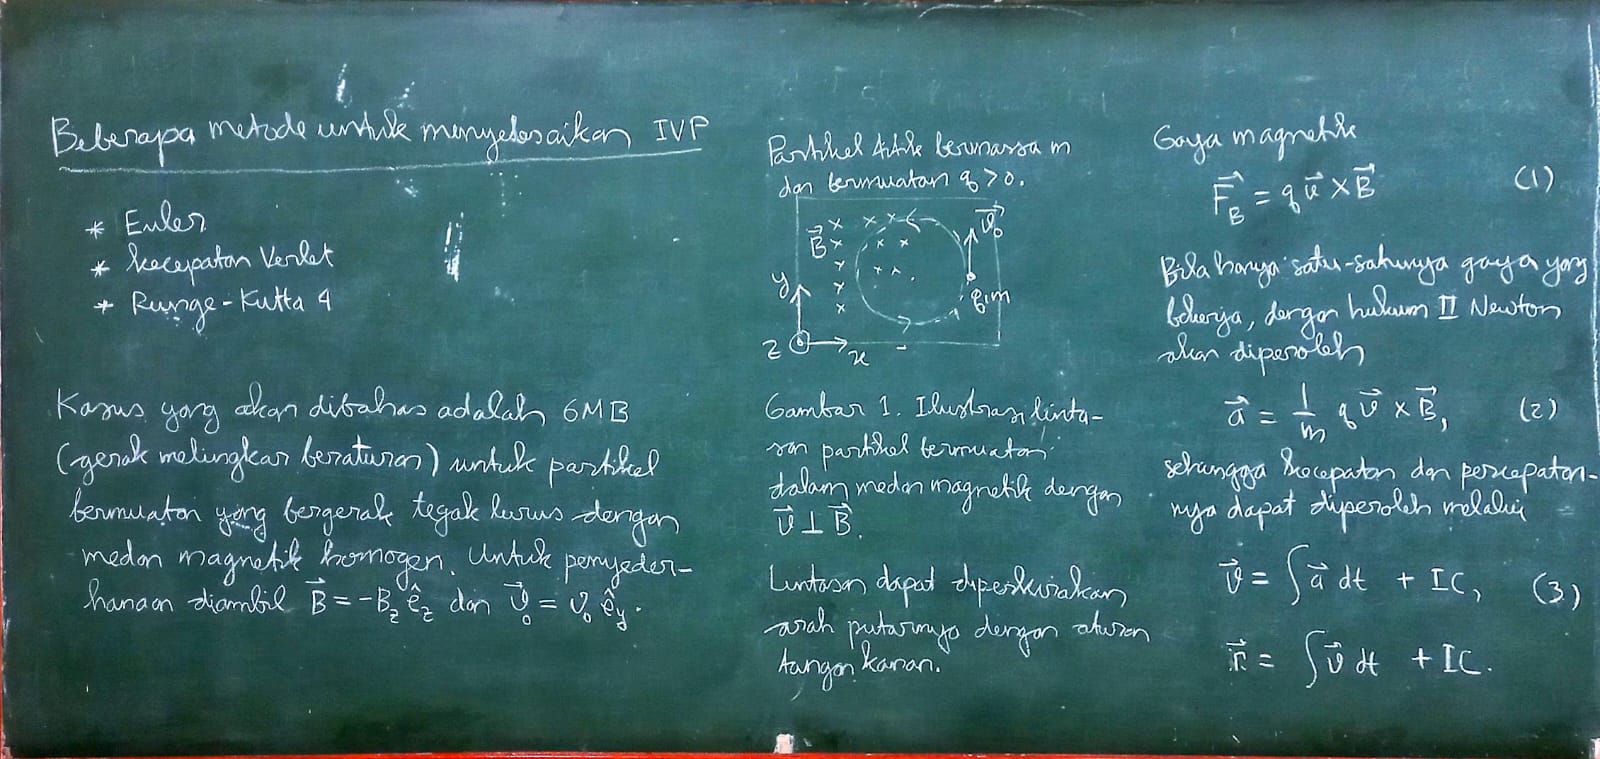 Beberapa metode untuk menyelesaikan IVP
* Euler
* kecepatan Verlet
* Runge-Kutta 4
Kasus yang akan dibahas adalah GMB
(gerak melingkar beraturan) untuk partikel
bermuatan yang bergerak tegak lurus dengan
medan magnetik homogen. Untuk penyeder-
hanaan diambil B⃗ = -B_z ê_z dan v⃗₀ = v₀ ê_y.
Partikel titik bermassa m
dan bermuatan q > 0.
B⃗
v⃗₀
y
q, m
z
x
Gambar 1. Ilustrasi linta-
san partikel bermuatan
dalam medan magnetik dengan
v⃗ ⊥ B⃗.
Lintasan dapat diperkirakan
arah putarnya dengan aturan
tangan kanan.
Gaya magnetik
F⃗_B = q v⃗ × B⃗ (1)
Bila hanya satu-satunya gaya yang
bekerja, dengan hukum II Newton
akan diperoleh
a⃗ = 1/m q v⃗ × B⃗, (2)
sehingga kecepatan dan percepatan-
nya dapat diperoleh melalui
v⃗ = ∫ a⃗ dt + IC, (3)
r⃗ = ∫ v⃗ dt + IC.